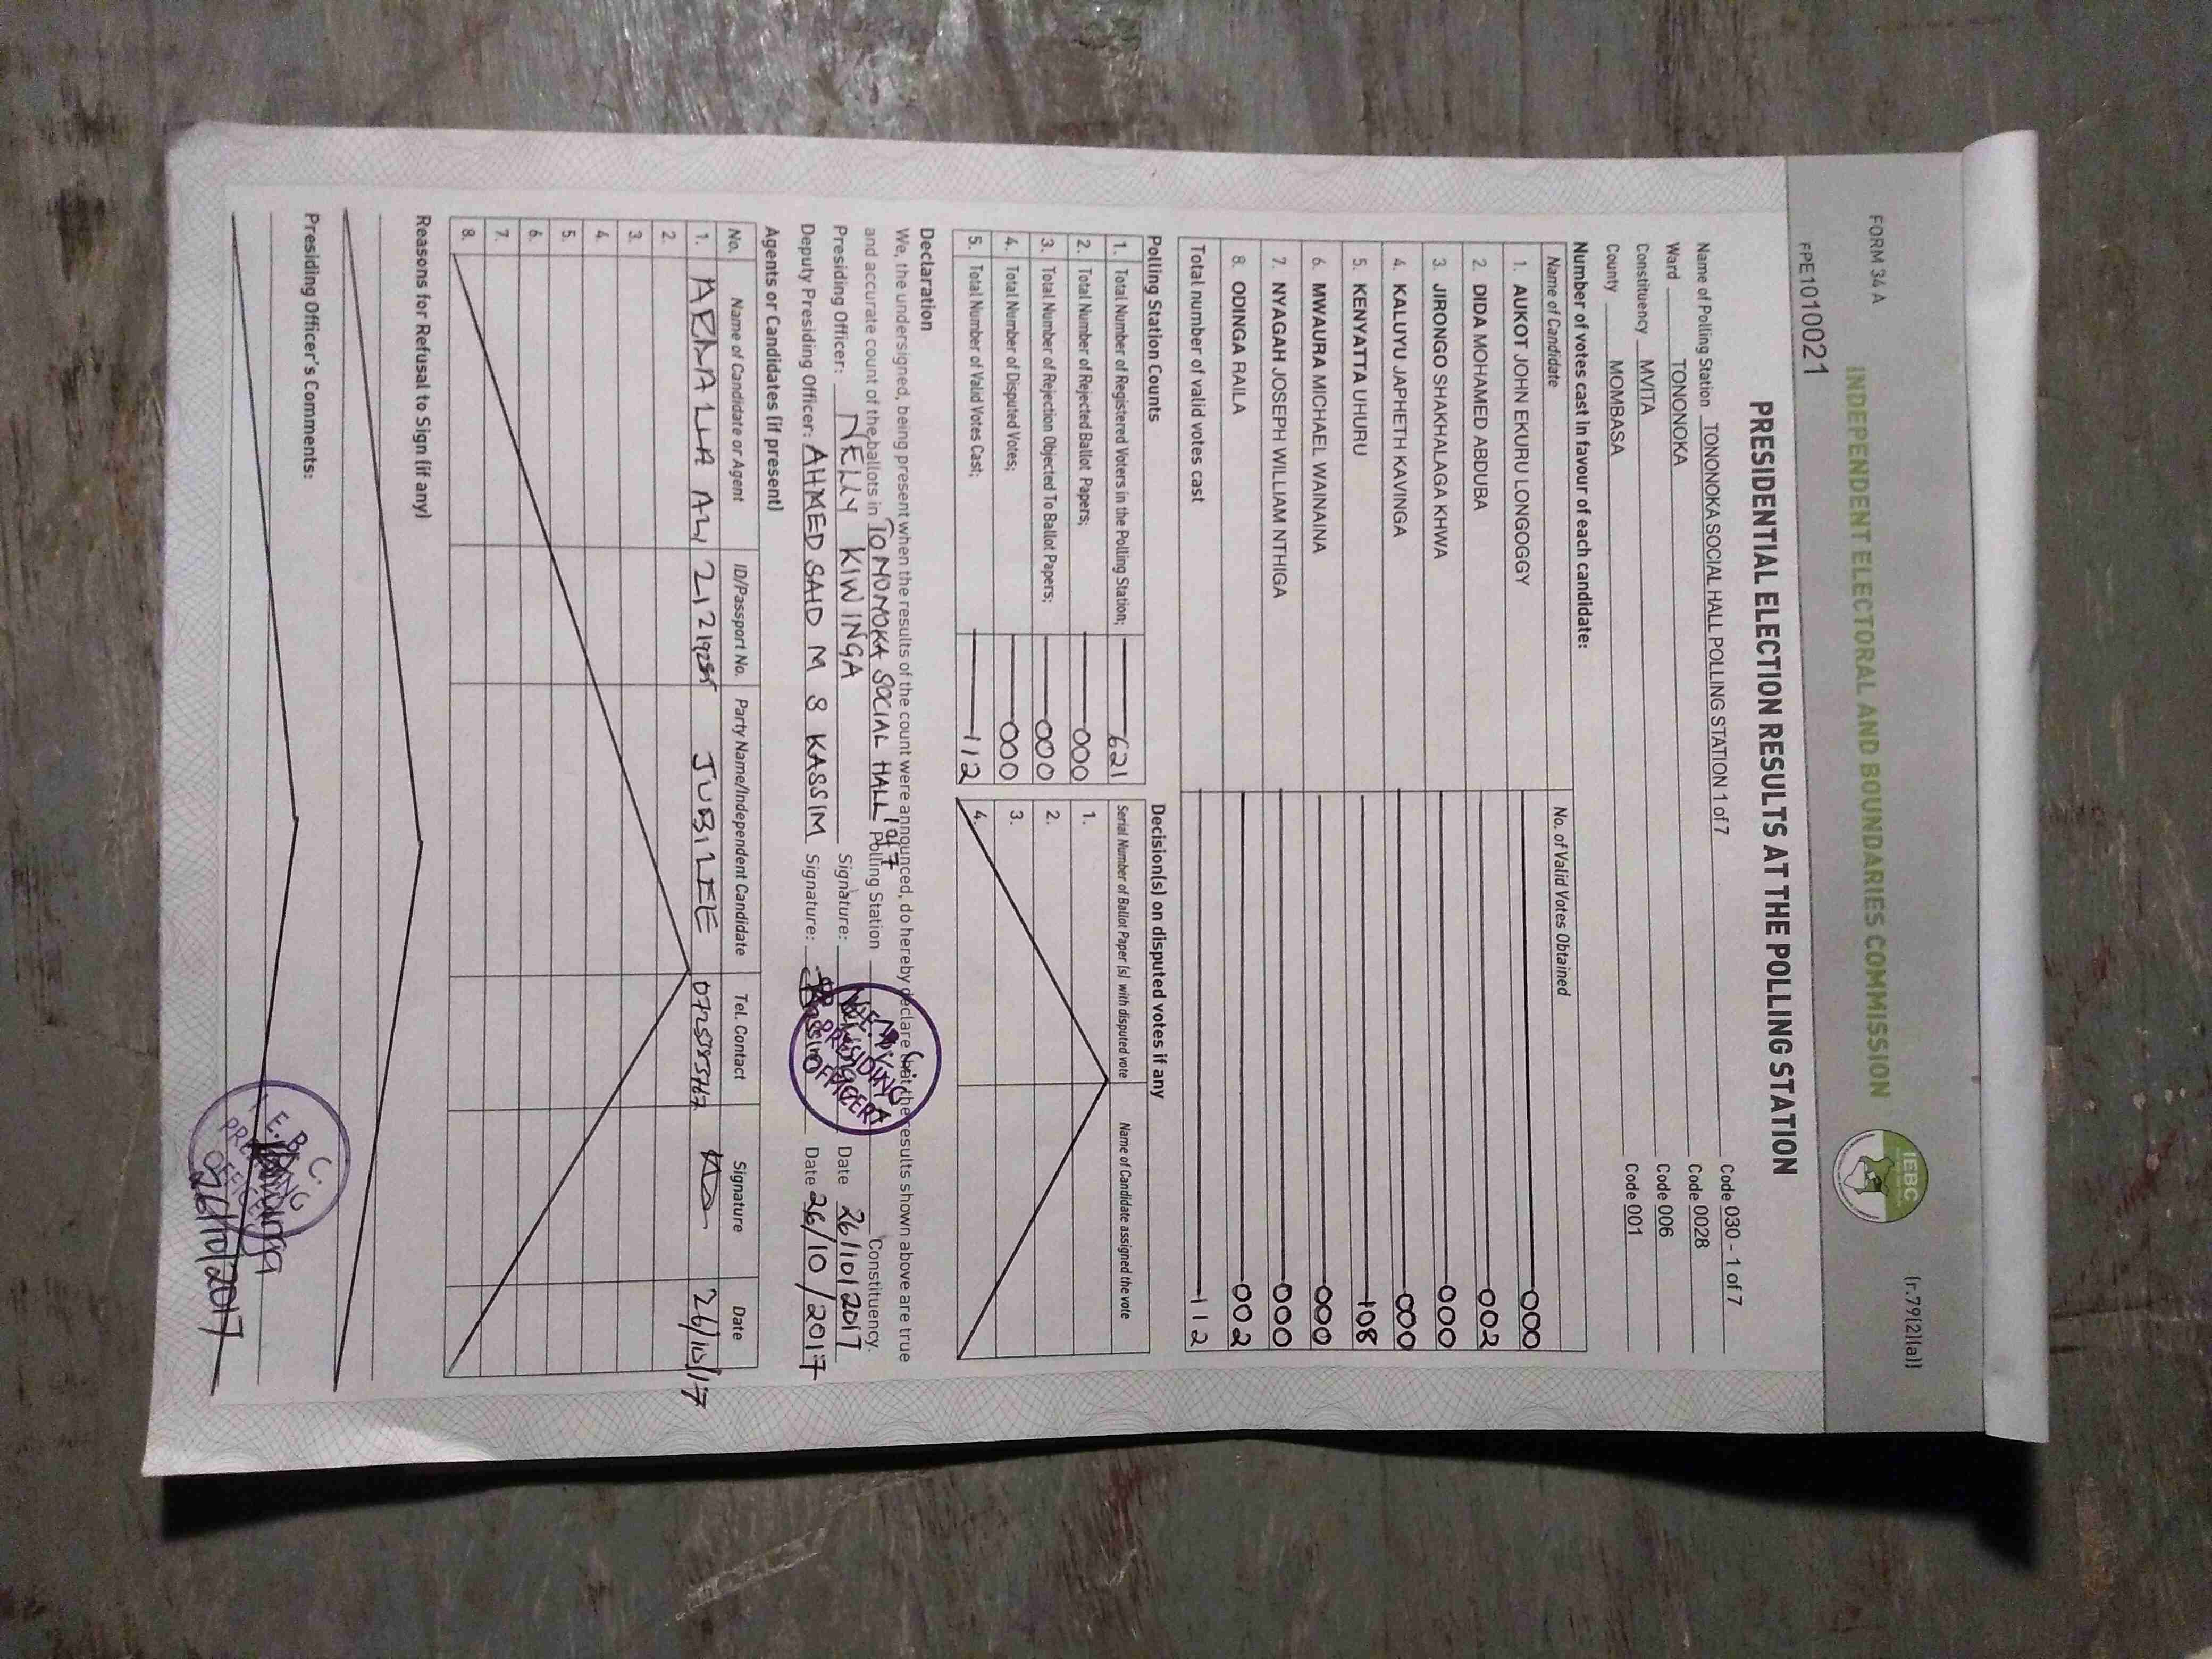 FORM 34 A
(r.79(2)(a))
INDEPENDENT ELECTORAL AND BOUNDARIES COMMISSION
IEBC
FPE1010021
PRESIDENTIAL ELECTION RESULTS AT THE POLLING STATION
Name of Polling Station TONONOKA SOCIAL HALL POLLING STATION 1 of 7 Code 030 - 1 of 7
Ward TONONOKA Code 0028
Constituency MVITA Code 006
County MOMBASA Code 001
Number of votes cast in favour of each candidate:
Name of Candidate No. of Valid Votes Obtained
1. AUKOT JOHN EKURU LONGOGGY 000
2. DIDA MOHAMED ABDUBA 002
3. JIRONGO SHAKHALAGA KHWA 000
4. KALUYU JAPHETH KAVINGA 000
5. KENYATTA UHURU 108
6. MWAURA MICHAEL WAINAINA 000
7. NYAGAH JOSEPH WILLIAM NTHIGA 000
8. ODINGA RAILA 002
Total number of valid votes cast 112
Polling Station Counts
1. Total Number of Registered Voters in the Polling Station; 621
2. Total Number of Rejected Ballot Papers; 000
3. Total Number of Rejection Objected To Ballot Papers; 000
4. Total Number of Disputed Votes; 000
5. Total Number of Valid Votes Cast; 112
Decision(s) on disputed votes if any
Serial Number of Ballot Paper (s) with disputed vote Name of Candidate assigned the vote
1.
2.
3.
4.
Declaration
We, the undersigned, being present when the results of the count were announced, do hereby declare that the results shown above are true
and accurate count of the ballots in TONONOKA SOCIAL HALL 1 of 7 Polling Station Constituency.
Presiding Officer: NELLY KIWINGA Signature: Date 26/10/2017
Deputy Presiding Officer: AHMED SAID M S KASSIM Signature: Date 26/10/2017
PRESIDING OFFICER
Agents or Candidates (if present)
No. Name of Candidate or Agent ID/Passport No. Party Name/Independent Candidate Tel. Contact Signature Date
1. ALI JUBILEE 26/10/17
2.
3.
4.
5.
6.
7.
8.
Reasons for Refusal to Sign (if any)
Presiding Officer's Comments:
26/10/2017